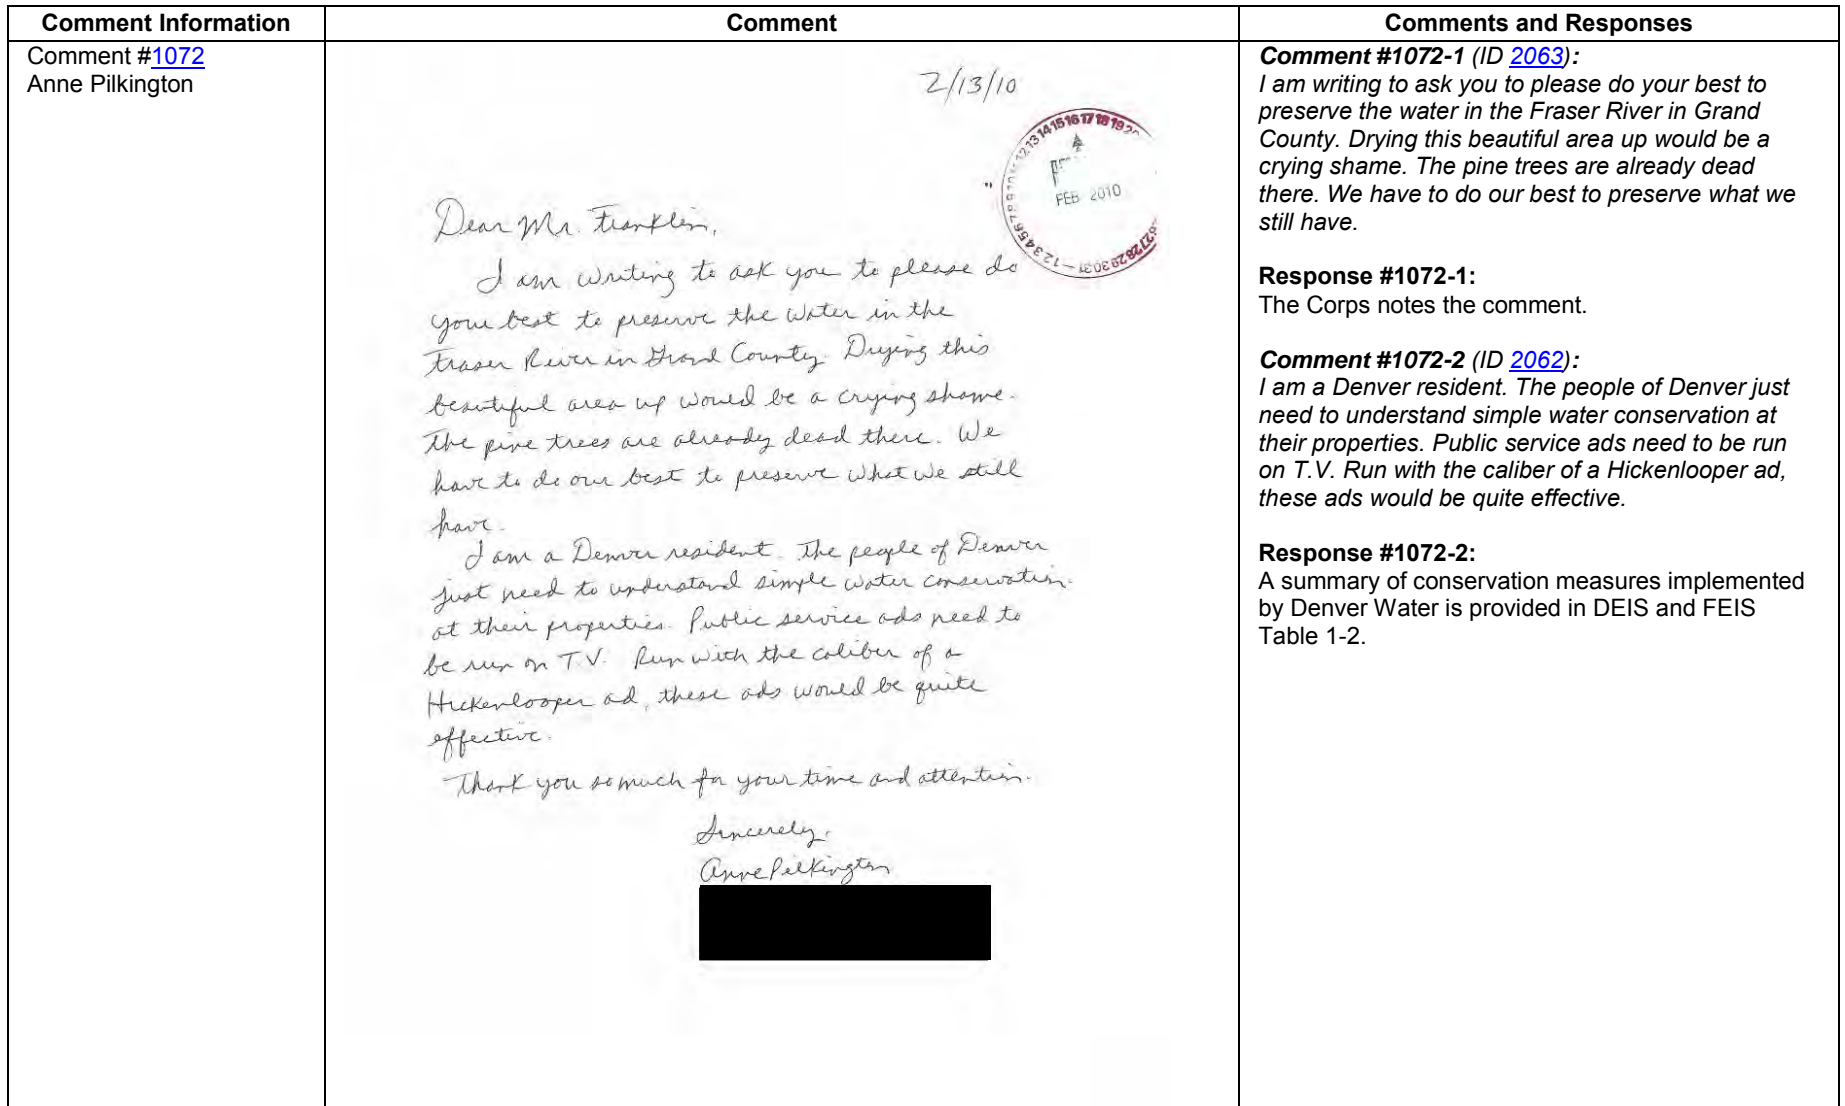 Comment Information
Comment
Comments and Responses
Comment #1072
Anne Pilkington
2/13/10
FEB 2010
Dear Mr. Franklin,
I am writing to ask you to please do
your best to preserve the water in the
Fraser River in Grand County. Drying this
beautiful area up would be a crying shame.
The pine trees are already dead there. We
have to do our best to preserve what we still
have.
I am a Denver resident. The people of Denver
just need to understand simple water conservation
at their properties. Public service ads need to
be run on T.V. Run with the caliber of a
Hickenlooper ad, these ads would be quite
effective.
Thank you so much for your time and attention.
Sincerely,
Anne Pilkington
Comment #1072-1 (ID 2063):
I am writing to ask you to please do your best to
preserve the water in the Fraser River in Grand
County. Drying this beautiful area up would be a
crying shame. The pine trees are already dead
there. We have to do our best to preserve what we
still have.
Response #1072-1:
The Corps notes the comment.
Comment #1072-2 (ID 2062):
I am a Denver resident. The people of Denver just
need to understand simple water conservation at
their properties. Public service ads need to be run
on T.V. Run with the caliber of a Hickenlooper ad,
these ads would be quite effective.
Response #1072-2:
A summary of conservation measures implemented
by Denver Water is provided in DEIS and FEIS
Table 1-2.